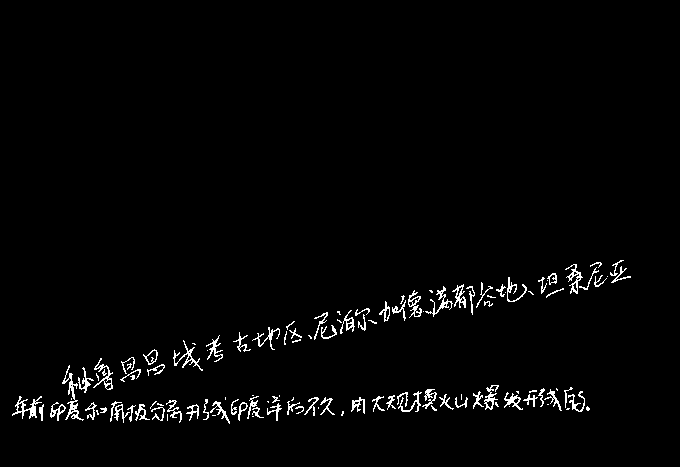 秘鲁昌昌城考古地区、尼泊尔加德满都谷地、坦桑尼亚
年前印度和南极分离形成印度洋后不久，由大规模火山爆发形成的。